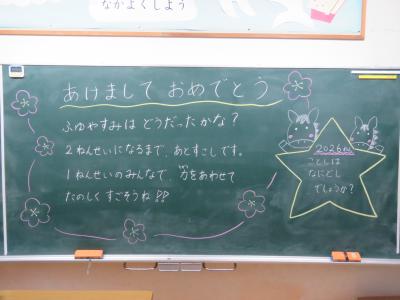 なかよくしよう
あけまして おめでとう
ふゆやすみは どうだったかな?
2ねんせいになるまで、あとすこしです。
1ねんせいのみんなで、力をあわせて
たのしく すごそうね!!
2026ねん
ことしは
なにどし
でしょうか?